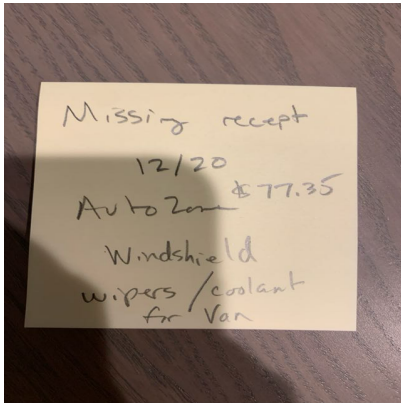 Missing recept
12/20
AutoZone $77.35
Windshield
wipers/coolant
for Van